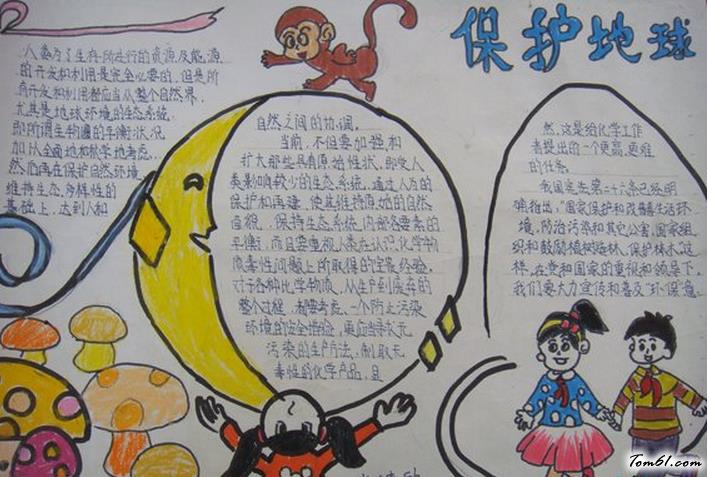 保护地球
人类为了生存所进行的资源及能源
的开发和利用是完全必要的,但是所
有开发和利用都应当从整个自然界,
尤其是地球环境的生态系统,
即所谓生物圈的平衡状况
加以全面地和科学地考虑,
然而再在保护自然环境
维持生态多样性的
基础上,达到人和
自然之间的协调。
当前,不但要加强和
扩大那些具有原始性状,即受人
类影响较少的生态系统,通过人为的
保护和再建,使其维持原地的自然
直貌,保持生态系统内部各要素的
平衡;而且要重视人类在认识化学物
质毒性问题上所取得的宝贵经验。
对于各种化学物质,从生产到废弃的
整个过程,都要考虑一个防止污染
环境的安全措施,更应当寻求无
污染的生产方法,制取无
毒性的化学产品,显
然,这是给化学工作
者提出的一个更高、更难
的任务。
我国宪法第二十六条已经明
确指出,“国家保护和改善生活环
境,防治污染和其它公害,国家组
织和鼓励植树造林、保护林木”这
样,在党和国家的重视和领导下,
我们要大力宣传和普及“环保”意
Tom61.com